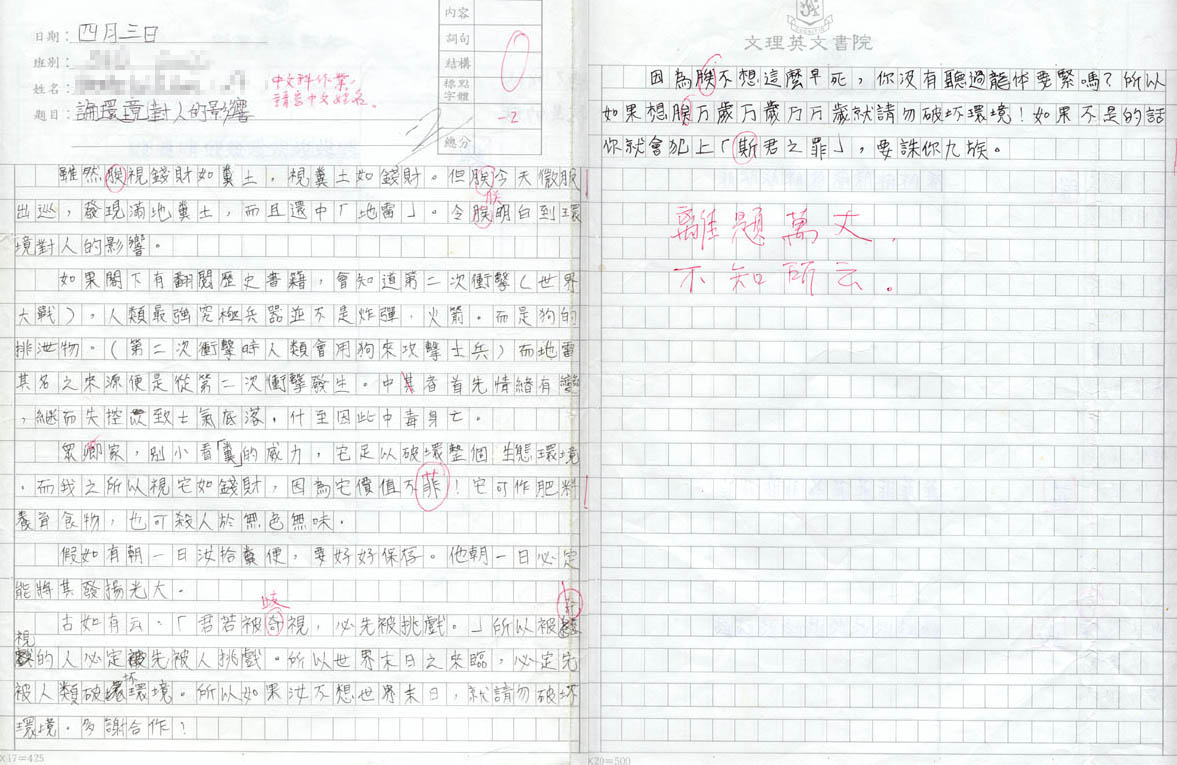 日期：四月三日
班別：
姓名：
題目：論環境對人的影響
中文科作業，
請寫中文姓名。
內容
詞句
結構
標點
字體
總分
0
-2
-2
雖然朕視錢財如糞土，視糞土如錢財。但朕今天微服
朕
出巡，發現滿地糞土，而且還中「地雷」。令朕明白到環
境對人的影響。
如果閣下有翻閱歷史書籍，會知道第二次衝擊（世界
大戰），人類最強究極兵器並不是炸彈，火箭。而是狗的
排泄物。（第二次衝擊時人類會用狗來攻擊士兵）而地雷
其名之來源便是從第二次衝擊發生。中其者首先情緒有變
，繼而失控以致士氣底落，什至因此中毒身亡。
眾卿家，別小看「糞」的威力，它足以破壞整個生態環境
，而我之所以視它如錢財，因為它價值不菲！它可作肥料
養育食物，也可殺人於無色無味。
假如有朝一日汝拾糞便，要好好保存。他朝一日必定
能將其發揚光大。
歧
古如有云，「君若被奇視，必先被挑戲。」所以被
視
的人必定先被人挑戲。所以世界末日之來臨，必定先
被人類破壞環境。所以如果汝不想世界末日，就請勿破坏
環境，多謝合作！
X17=425
文理英文書院
因為朕不想這麼早死，你沒有聽過龍体要緊嗎？所以
如果想朕万歲万歲万万歲就請勿破坏環境！如果不是的話
你就會犯上「斯君之罪」，要誅你九族。
離題萬丈，
不知所云。
X20=500